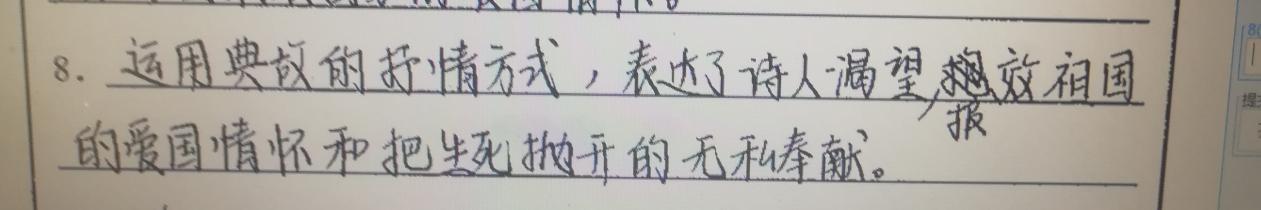 8. 运用典故的抒情方式，表达了诗人渴望报效祖国
的爱国情怀和把生死抛开的无私奉献。